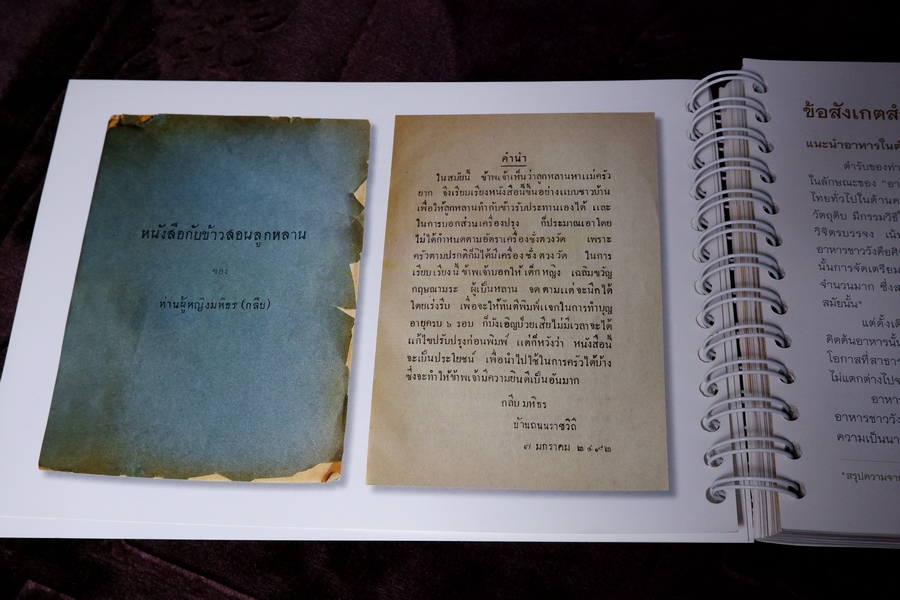 หนังสือกับข้าวสอนลูกหลาน
ของ
ท่านผู้หญิงมหิธร (กลีบ)
คำนำ
ในสมัยนี้ ข้าพเจ้าเห็นว่าลูกหลานหาแม่ครัว
ยาก จึงเรียบเรียงหนังสือนี้ขึ้นอย่างแบบชาวบ้าน
เพื่อให้ลูกหลานทำกับข้าวรับประทานเองได้ และ
ในการบอกส่วนเครื่องปรุง ก็ประมาณเอาโดย
ไม่ได้กำหนดตามอัตราเครื่องชั่งตวงวัด เพราะ
ครัวตามปรกติก็มิได้มีเครื่อง ชั่ง ตวง วัด ในการ
เรียบเรียงนี้ ข้าพเจ้าบอกให้ เด็ก หญิง เฉลิมขวัญ
กฤษณามระ ผู้เป็นหลาน จด ตามแต่ จะนึก ได้
โดยเร่งรีบ เพื่อจะให้ทันตีพิมพ์แจกในการทำบุญ
อายุครบ ๖ รอบ ก็บังเอิญป่วยเสียไม่มีเวลาจะได้
แก้ไขปรับปรุงก่อนพิมพ์ แต่ก็หวังว่า หนังสือนี้
จะเป็นประโยชน์ เพื่อนำไปใช้ในการครัวได้บ้าง
ซึ่งจะทำให้ข้าพเจ้ามีความยินดีเป็นอันมาก
กลีบ มหิธร
บ้านถนนราชวิถี
๗ มกราคม ๒๔๙๒
ข้อสังเกต
แนะนำอาหารใน
ตำรับของท่า
ในลักษณะของ "อา
ไทยทั่วไปในด้าน
วัตถุดิบ มีกรรมวิธี
วิจิตรบรรจง เน้น
อาหารชาววังคือ
นั้นการจัดเตรียม
จำนวนมาก ซึ่ง
สมัยนั้น*
แต่ดั้งเดิ
คิดค้นอาหารนั้น
โอกาสที่สาธาร
ไม่แตกต่างไป
อาหาร
อาหารชาววัง
ความเป็นนา
*สรุปความจาก